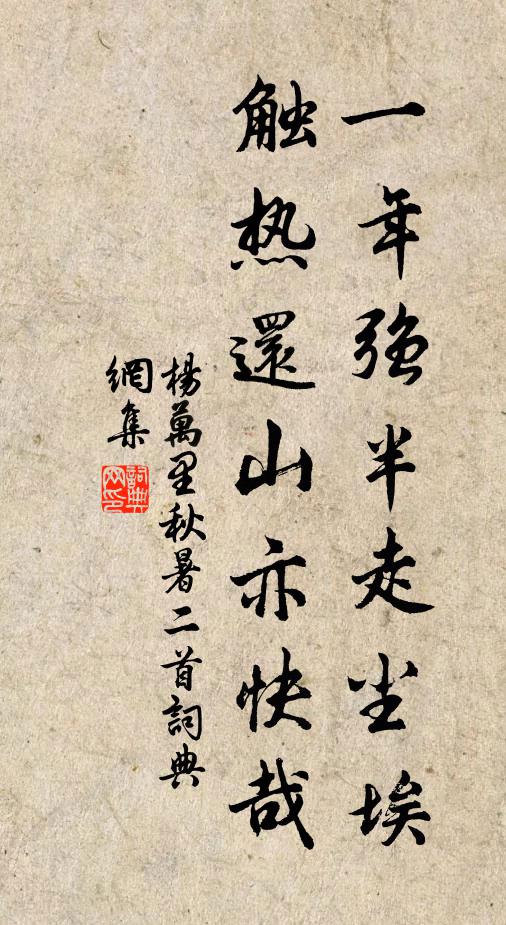 一年強半走尘埃
触热還山亦快哉
楊萬里秋暑二首詞典
網集
詞典
网印